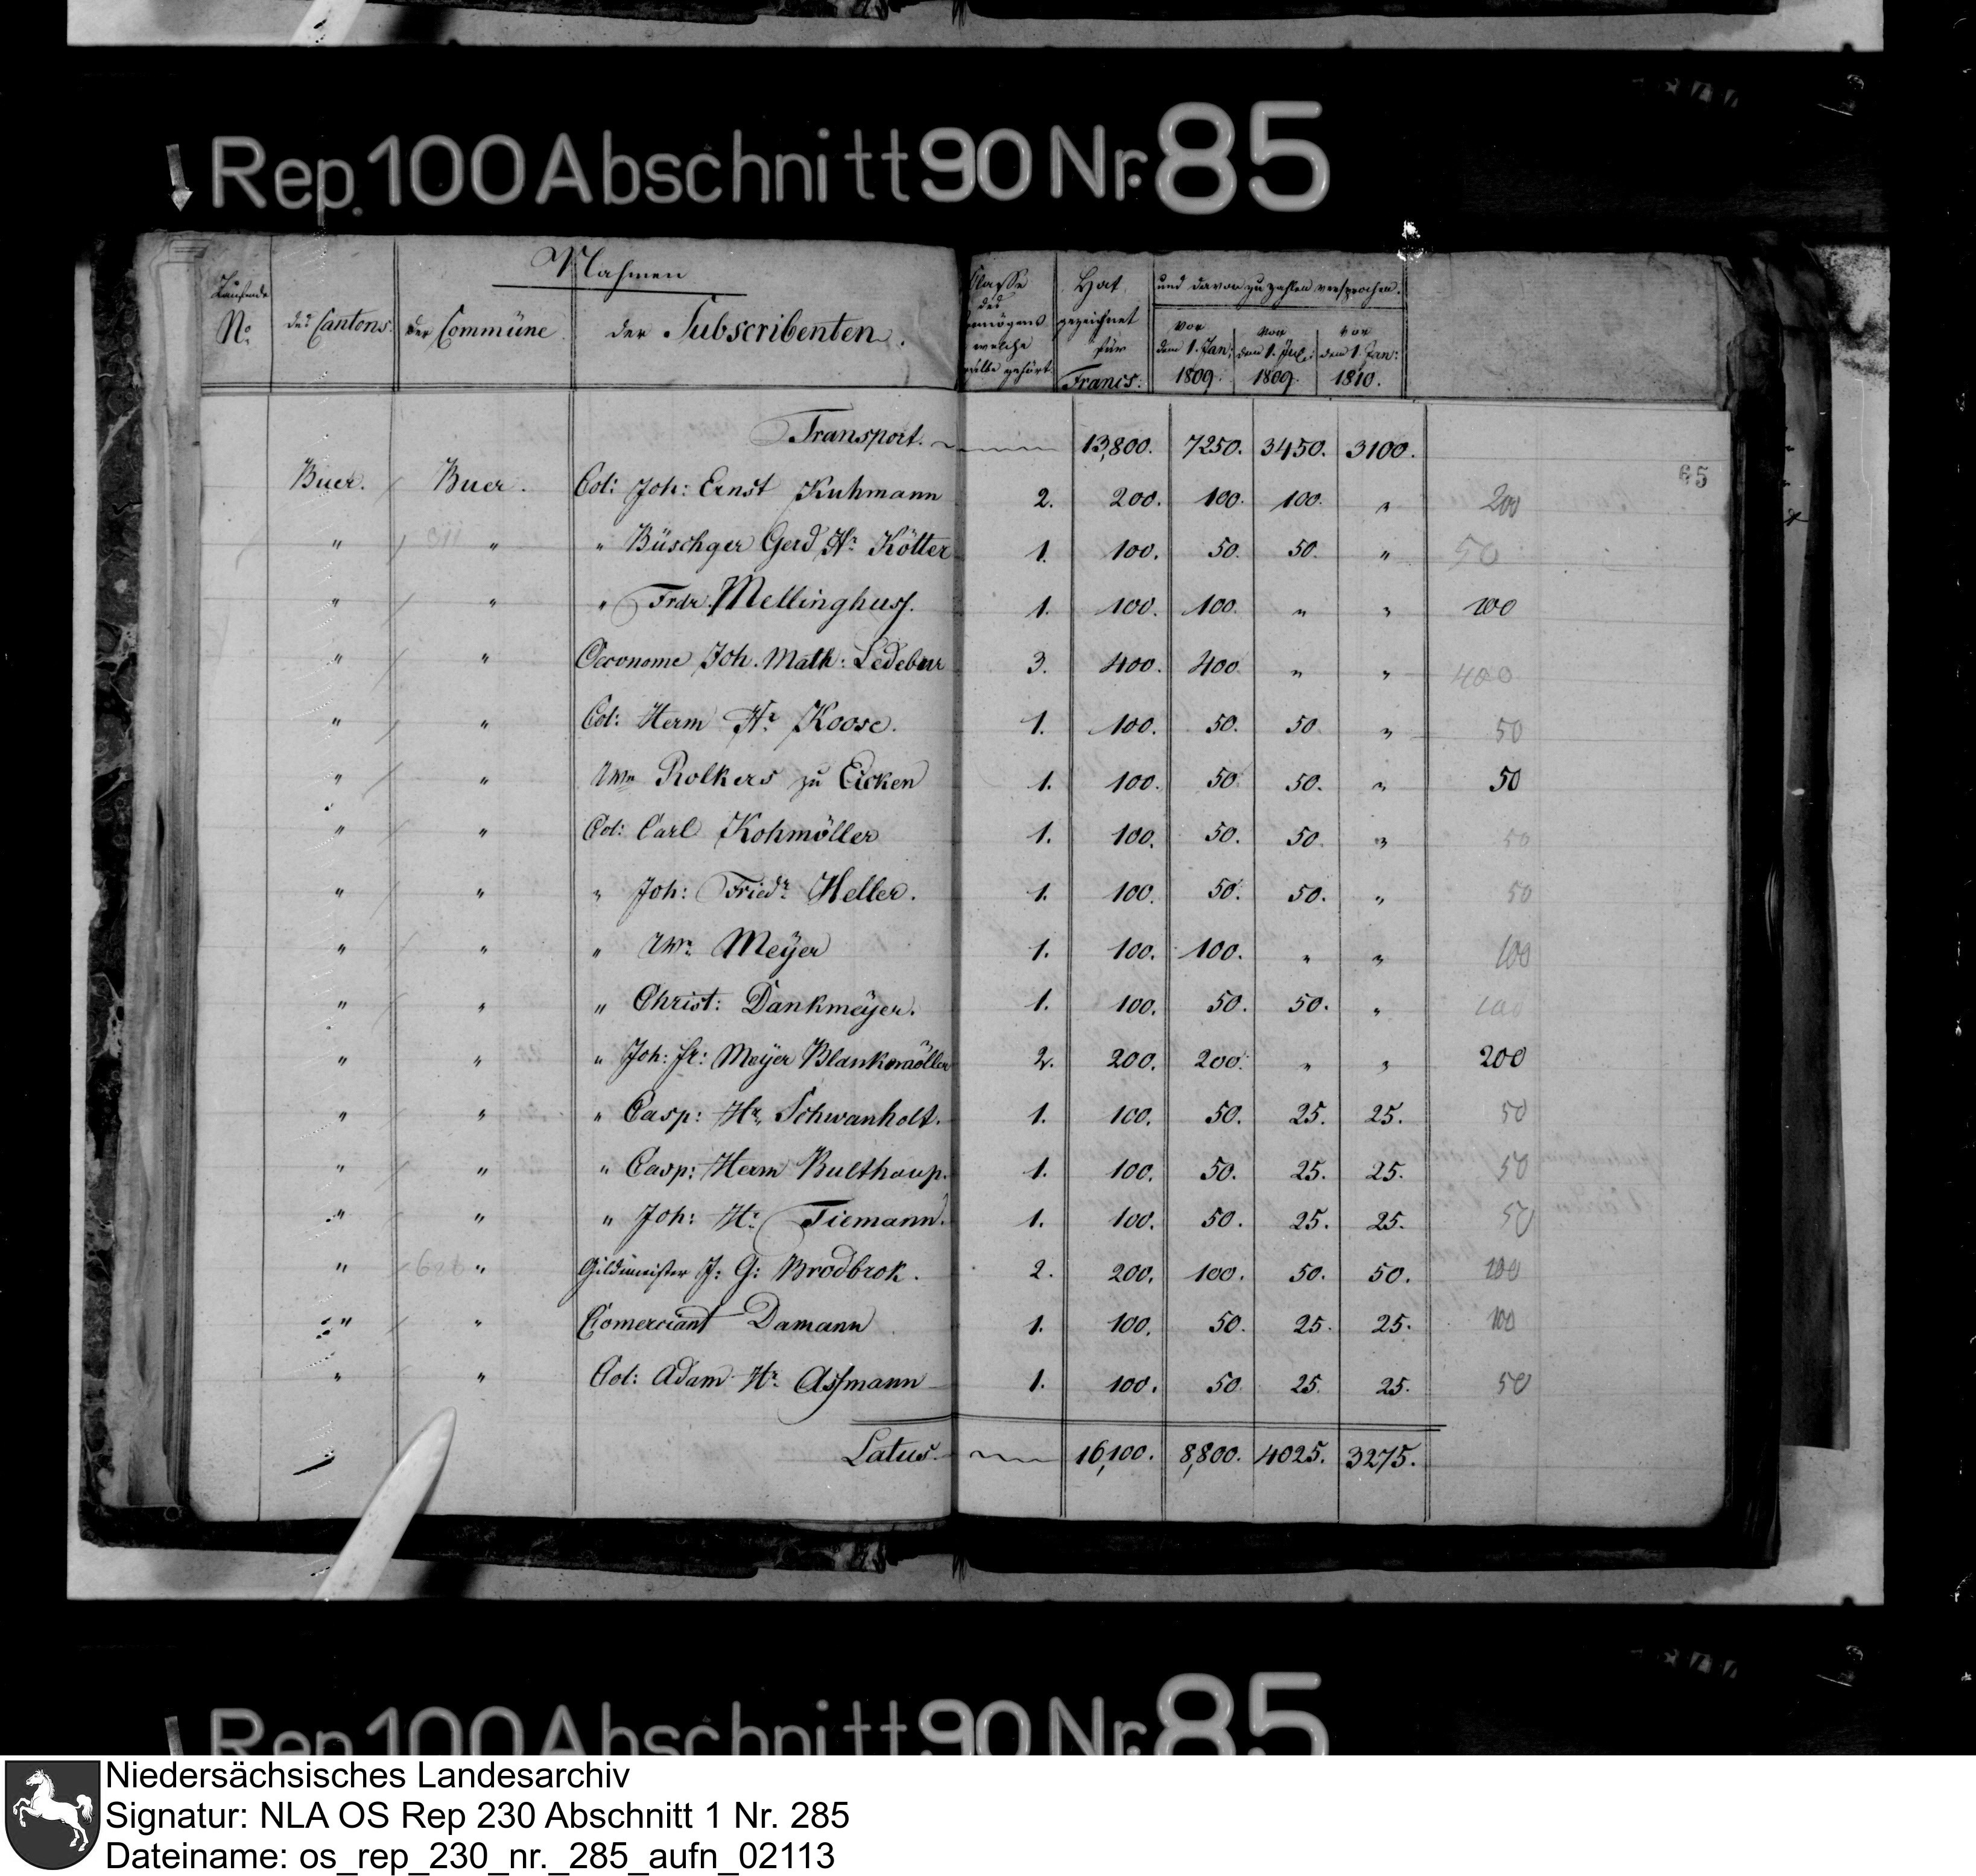 Rep. 100 Abschnitt 90 Nr. 85
Laufende No. des Cantons. der Commüne Nahmen der Subscribenten. Classe des welche gehört. Hat gezeichnet für Francs: und davon zu zahlen versprochen. vor dem 1. Jan: 1809. vor dem 1. Jul: 1809. vor dem 1. Jan: 1810.
Transport. 13,800. 7250. 3450. 3100.
65
Buer. Buer. Col: Joh: Ernst Kuhmann 2. 200. 100. 100. " 200
" " " Büschger Gerd Hr. Kötter 1. 100. 50. 50. " 50
" " " Frdr. Mellinghuss. 1. 100. 100. " " 100
" " Oeconome Joh. Math: Ledebur 3. 400. 400. " " 400
" " Col: Herm Hr. Koose. 1. 100. 50. 50. " 50
" " Wwe Rolkers zu Eicken 1. 100. 50. 50. " 50
" " Col: Carl Kohmöller 1. 100. 50. 50. " 50
" " " Joh: Friedr. Heller. 1. 100. 50. 50. " 50
" " " Wwe Meÿer 1. 100. 100. " " 100
" " " Christ: Dankmeÿer. 1. 100. 50. 50. " 100
" " " Joh: fr: Meÿer Blankmöller 2. 200. 200. " " 200
" " " Casp: Hr. Schwanholt. 1. 100. 50. 25. 25. 50
" " " Casp: Herm Bulthaup. 1. 100. 50. 25. 25. 50
" " " Joh: Hr. Tiemann. 1. 100. 50. 25. 25. 50
" " Gildemeister J: G: Brodbrok. 2. 200. 100. 50. 50. 100
" " Comerciant Damann 1. 100. 50. 25. 25. 100
" " Col: Adam Hr. Assmann 1. 100. 50. 25. 25. 50
Latus. 16,100. 8,800. 4025. 3275.
Rep. 100 Abschnitt 90 Nr. 85
Niedersächsisches Landesarchiv
Signatur: NLA OS Rep 230 Abschnitt 1 Nr. 285
Dateiname: os_rep_230_nr._285_aufn_02113